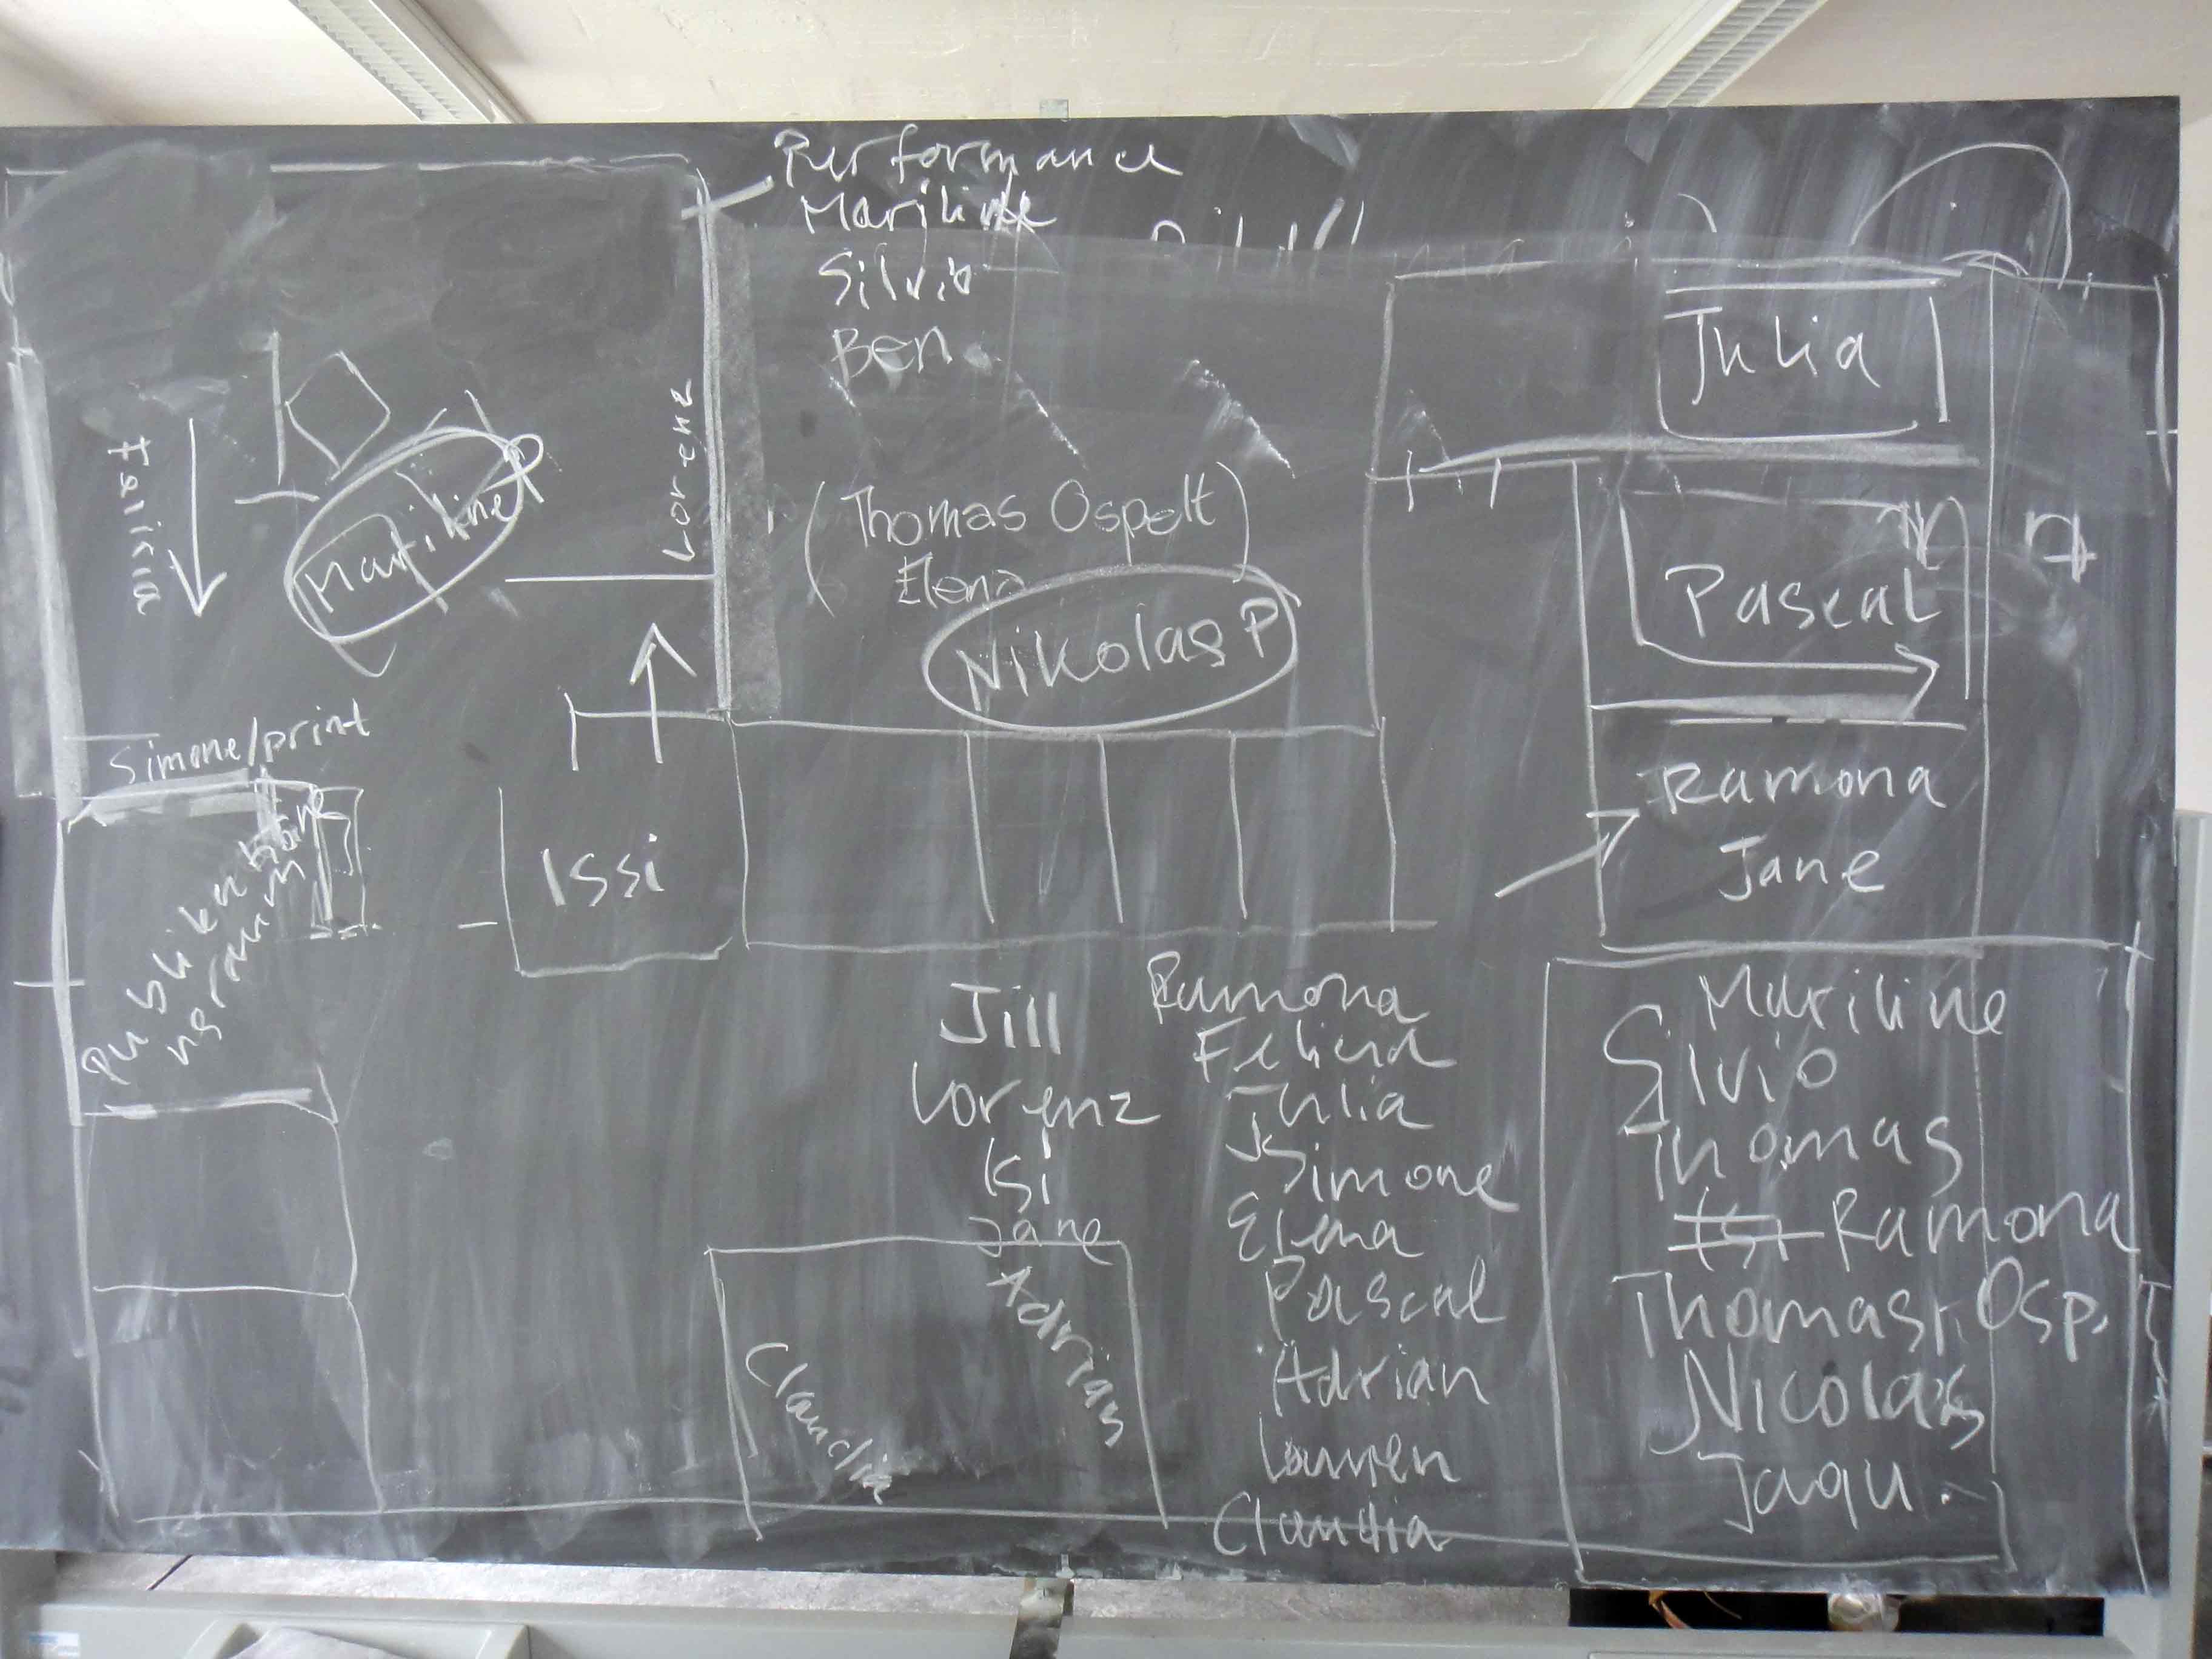 Performance
Mariline
Silvio
Ben
Julia
Lorenz
Felicia
Mariline
(Thomas Ospelt)
Elena
Nikolas P
Pascal
Simone/print
Ramona
Jane
Issi
Jill
Lorenz
Isi
Jane
Adrian
Claudia
Ramona
Felicia
Julia
Simone
Elena
Pascal
Adrian
Claudia
Mariline
Silvio
Thomas
Isi Ramona
Thomas Osp.
Nicolas
Jaqu.